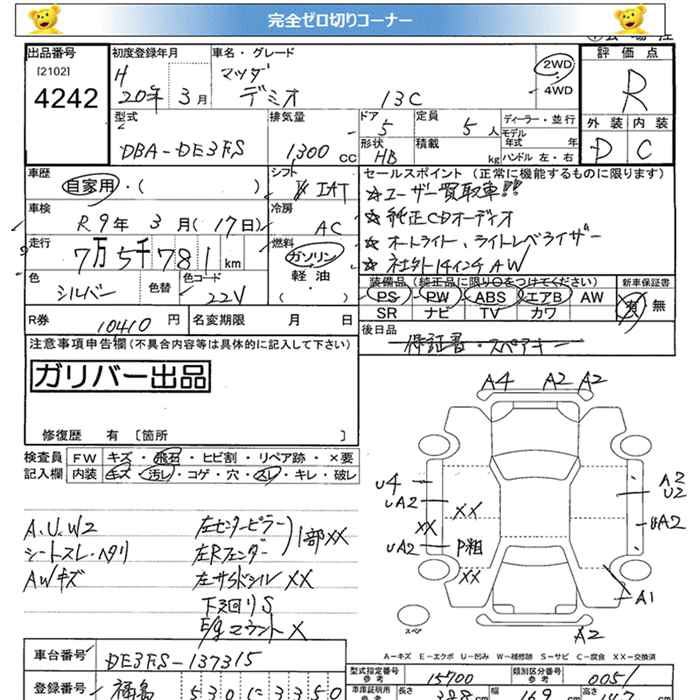 完全ゼロ切りコーナー
出品番号
[2102]
4242
初度登録年月
H 20年 3月
車名・グレード
マツダ
デミオ 13C
2WD
・
4WD
評価点
R
外装 内装
D C
型式
DBA-DE3FS
排気量
1300 cc
ドア
5
定員
5人
形状
HB
積載
kg
ディーラー・並行
モデル
年式 年
ハンドル 左・右
車歴
自家用・( )
シフト
IAT
車検
R9年 3月(17日)
冷房
AC
走行
7万5千781 km
燃料
ガソリン
軽油
( )
色
シルバー
色替
色コード
22V
セールスポイント(正常に機能するものに限ります)
☆ユーザー買取車!!
☆純正CDオーディオ
☆オートライト、ライトレベライザー
☆社外14インチAW
装備品(純正品に限り○をつけてください)
PS PW ABS エアB AW
SR ナビ TV カワ
新車保証書
有 無
R券
10410 円
名変期限 月 日
後日品
保証書・スペアキー
注意事項申告欄(不具合内容等は具体的に記入して下さい)
ガリバー出品
修復歴 有 〔箇所 〕
検査員
記入欄
FW キズ・飛石・ヒビ割・リペア跡・×要
内装 キズ・汚レ・コゲ・穴・スレ・キレ・破レ
A.U.W2
シートスレ・ヘタリ
AWキズ
左センターピラー
左Rフェンダー
1部XX
左サイドシル XX
下回りS
E/gマウントX
A4 A2 A2
U4
UA2
XX
UA2
XX
P粗
XX
A2
U2
UA2
A1
A2
スペア
A-キズ E-エクボ U-凹み W-補修跡 S-サビ C-腐食 XX-交換済
車台番号
DE3FS-137315
登録番号
福島 530 に 3350
型式指定番号
参考
15700
類別区分番号
参考
0051
車庫証明用
参考
長さ
388 cm
幅
169 cm
高さ